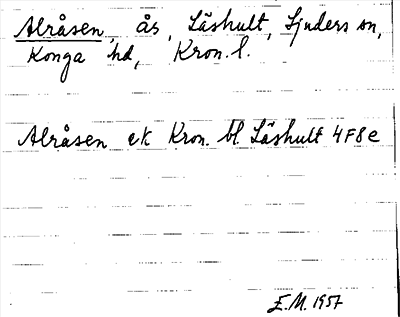 Alråsen, ås, Låshult, Ljuders sn,
Konga hd, Kron. l.
Alråsen ek Kron. bl. Låshult 4F8e
E.M. 1957